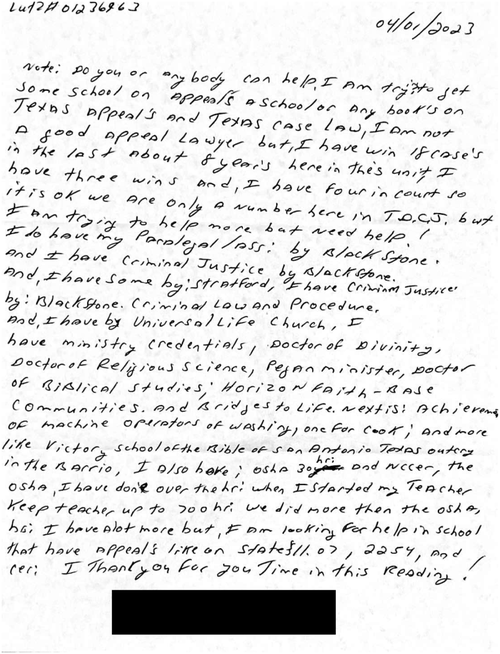 Lutz# 01236963
04/01/2023
Note: Do you or any body can help, I Am try to get
Some school on Appeal's A school or Any book's on
Texas Appeal's and Texas Case Law, I Am not
A good Appeal Lawyer but, I have win 18 case's
in the last About 8 year's here in this unit I
have three wins And, I have Four in court so
it is ok we are only a number here in T.D.C.J. but
I am trying to help more but need help!
I do have my Paralegal/Ass: by Blackstone.
And I have Criminal Justice by Blackstone.
And, I have some by: Stratford, I have Criminal Justice
by: Blackstone. Criminal Law and Procedure.
And, I have by Universal Life Church, I
have ministry credentials, Doctor of Divinity,
Doctor of Religious Science, Pegan minister, Doctor
of Biblical Studies, Horizon Faith-Base
Communities. And Bridges to Life. Next is: Achievem
of machine operators of washing, one for cook, And more
like Victory school of the Bible of San Antonio Texas outcry
in the Barrio, I Also have; osha 30 hr: And nccer, the
osha, I have done over the hr: when I Started my Teacher
Keep teacher up to 700 hr: we did more than the osha,
hs: I have Alot more but, I Am looking for help in school
that have Appeals like on State §11.07, 2254, And
cer: I Thank you For you Time in this Reading!